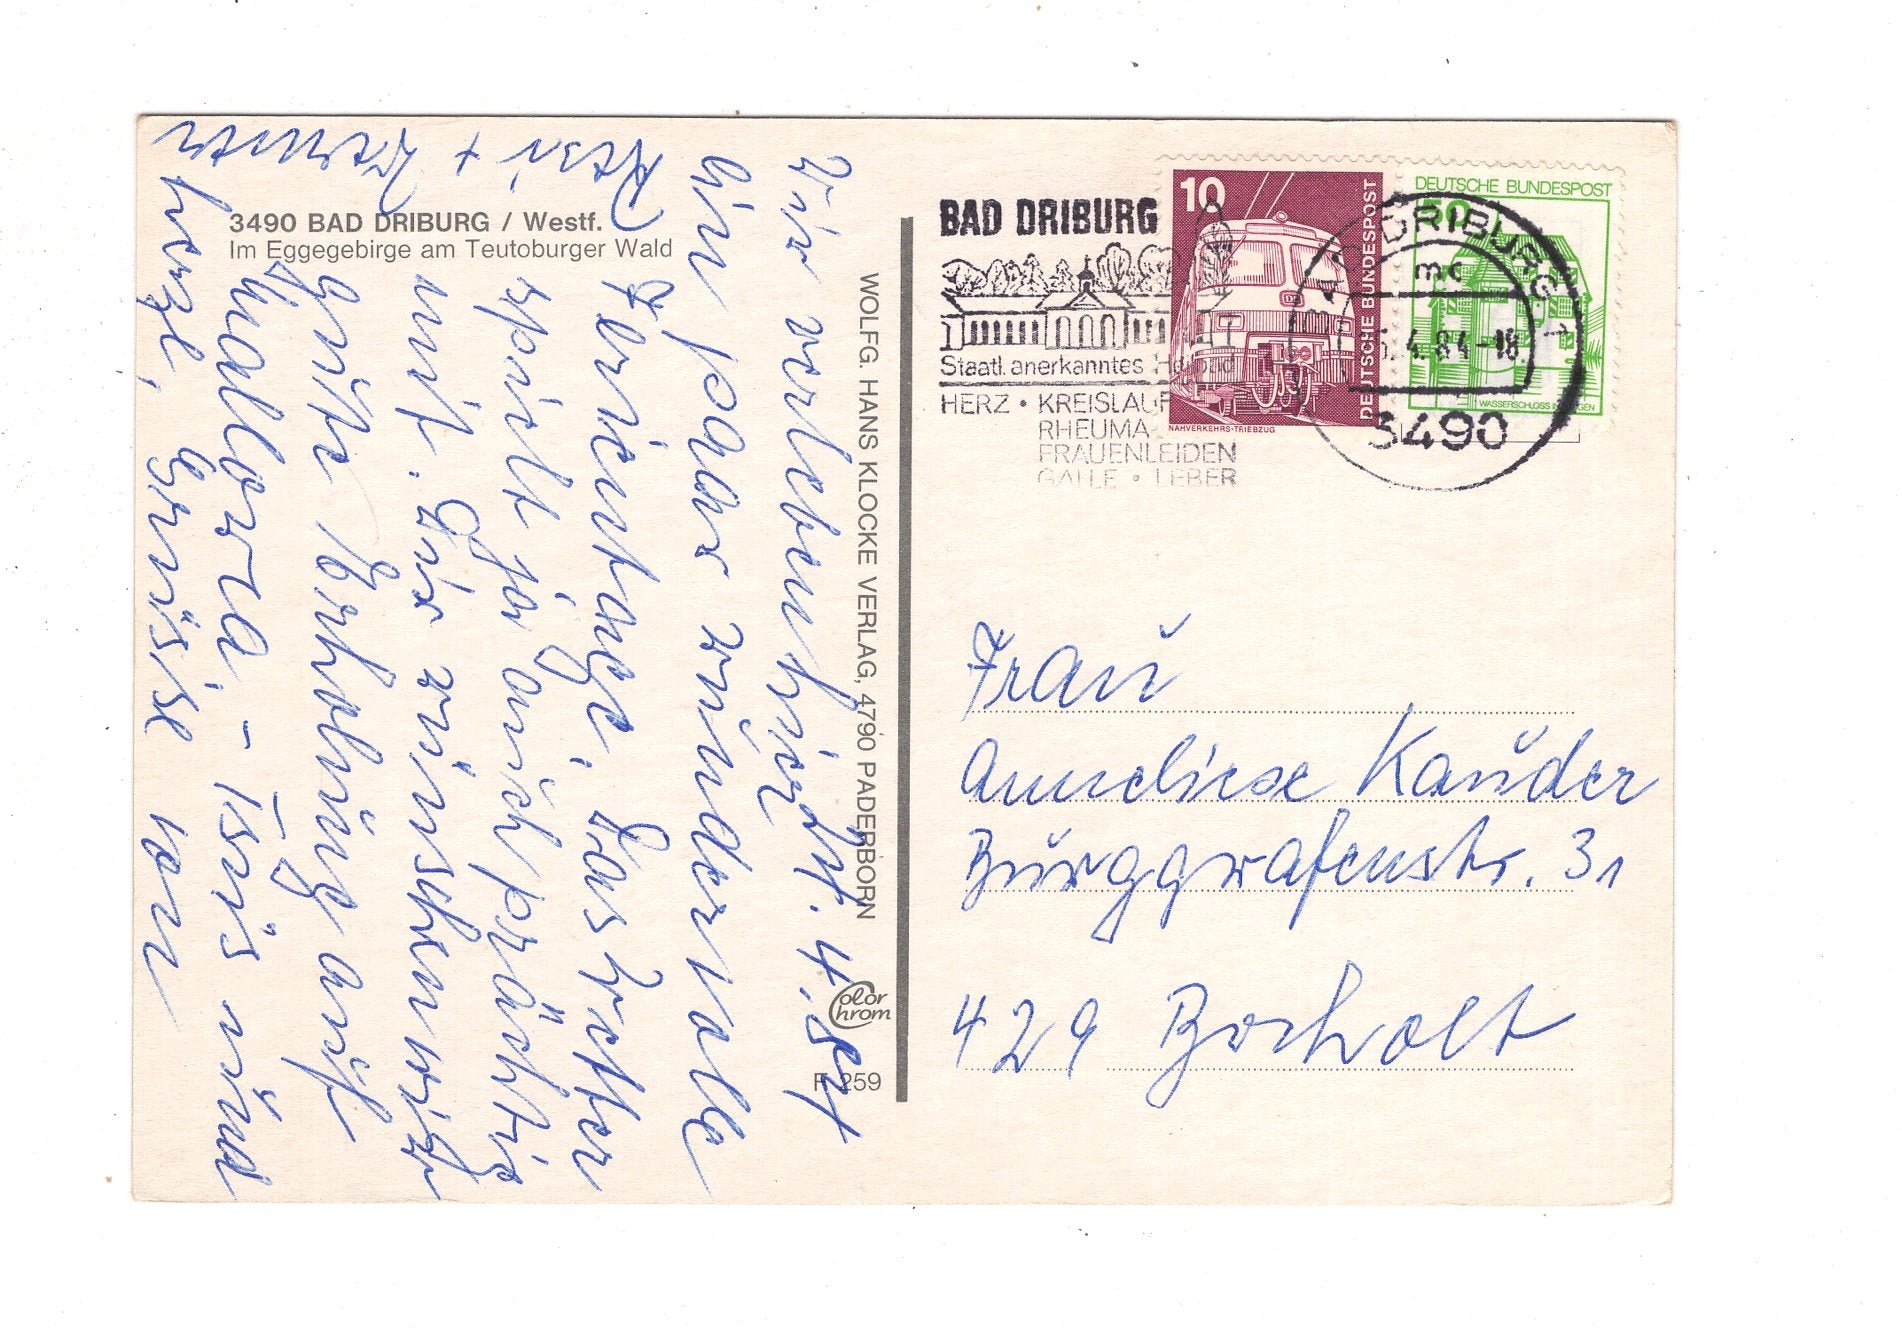 3490 BAD DRIBURG / Westf.
Im Eggegebirge am Teutoburger Wald
4.4.84
Wir verleben hier
ein paar wundervolle
Ferientage. Das Wetter
spielt ja auch prächtig
mit. Wir wünschen
gute Erholung auf
Mallorca - Tschüs und
herzl. Grüsse von
Resi +
WOLFG. HANS KLOCKE VERLAG, 4790 PADERBORN
Color Chrom
F 259
BAD DRIBURG
Staatl. anerkanntes Heilbad
HERZ • KREISLAUF
RHEUMA
FRAUENLEIDEN
GALLE • LEBER
10
DEUTSCHE BUNDESPOST
NAHVERKEHRS-TRIEBZUG
DEUTSCHE BUNDESPOST
50
WASSERSCHLOSS INZLINGEN
BAD DRIBURG 1
mc
5.4.84-18
3490
Frau
Anneliese Kauder
Burggrafenstr. 31
429 Bocholt